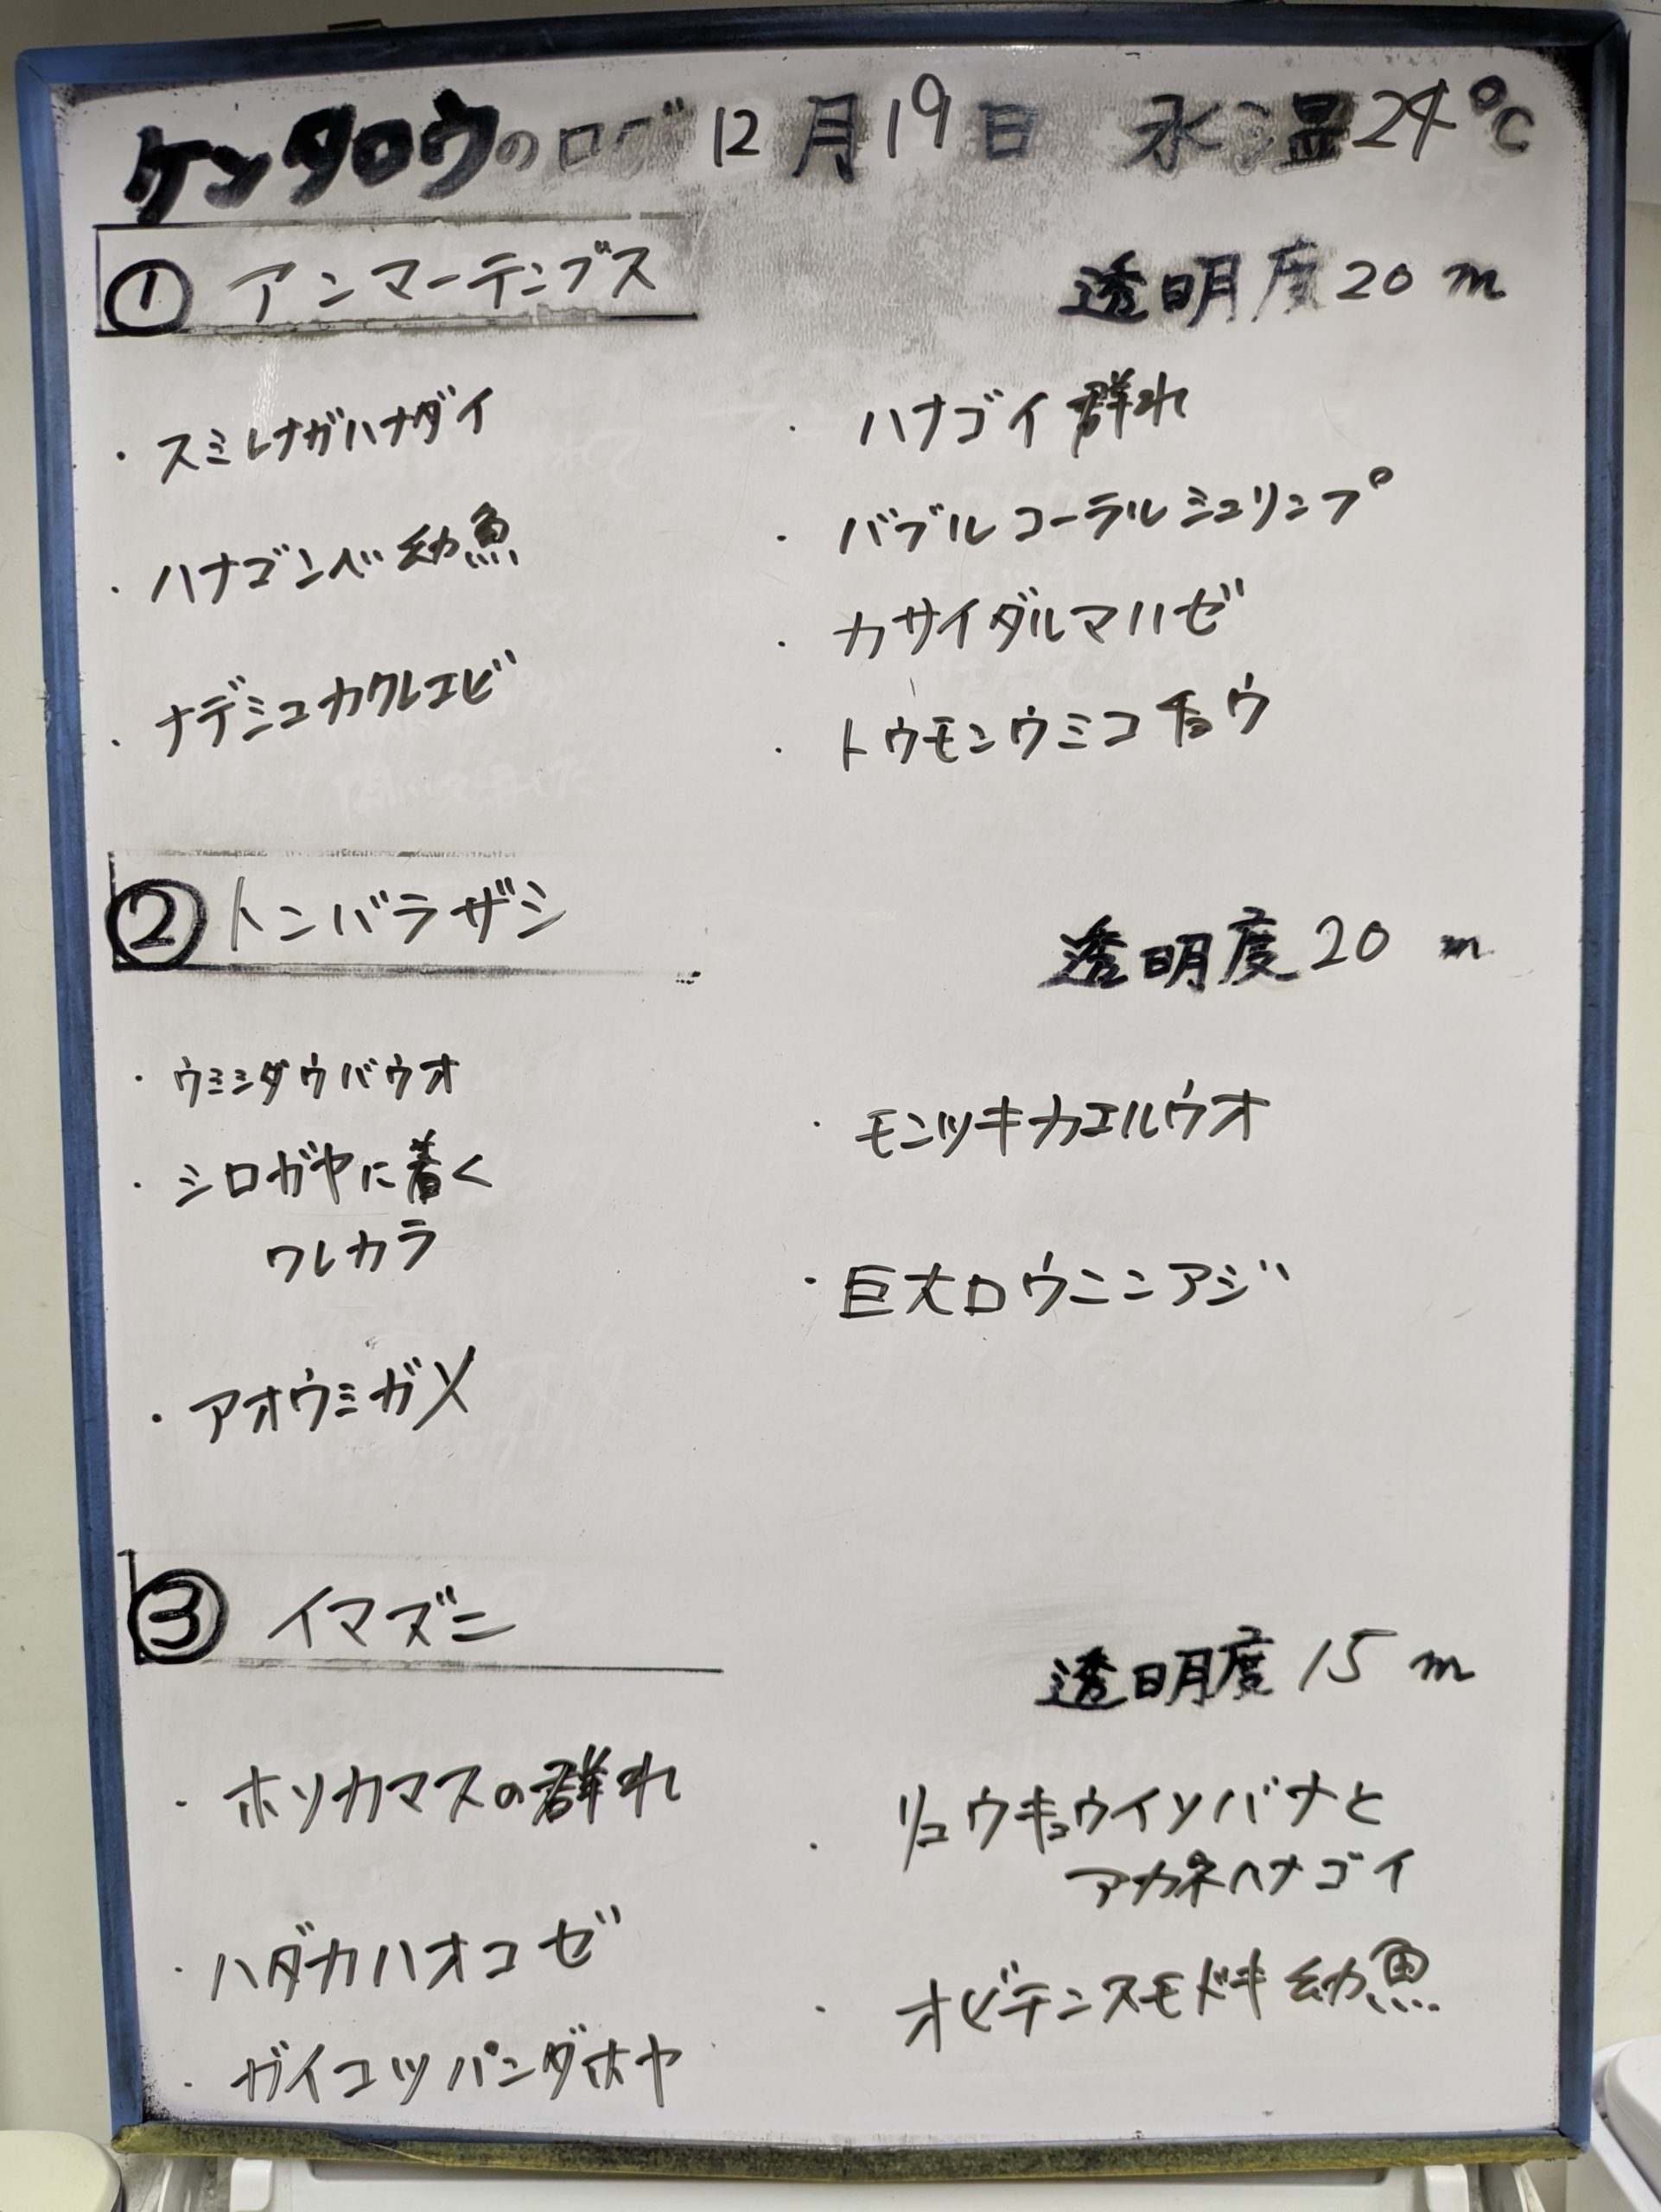 ケンタロウのログ 12月19日 水温24℃
① アンマーテンブス 透明度20m
・スミレナガハナダイ
・ハナゴンベ幼魚
・ナデシコカクレエビ
・ハナゴイ群れ
・バブルコーラルシュリンプ
・カサイダルマハゼ
・トウモンウミコチョウ
② トンバラザシ 透明度20m
・ウミシダウバウオ
・シロガヤに着く
ワレカラ
・アオウミガメ
・モンツキカエルウオ
・巨大ロウニンアジ
③ イマズニ 透明度15m
・ホソカマスの群れ
・ハダカハオコゼ
・ガイコツパンダホヤ
・リュウキュウイソバナと
アカネハナゴイ
・オビテンスモドキ幼魚